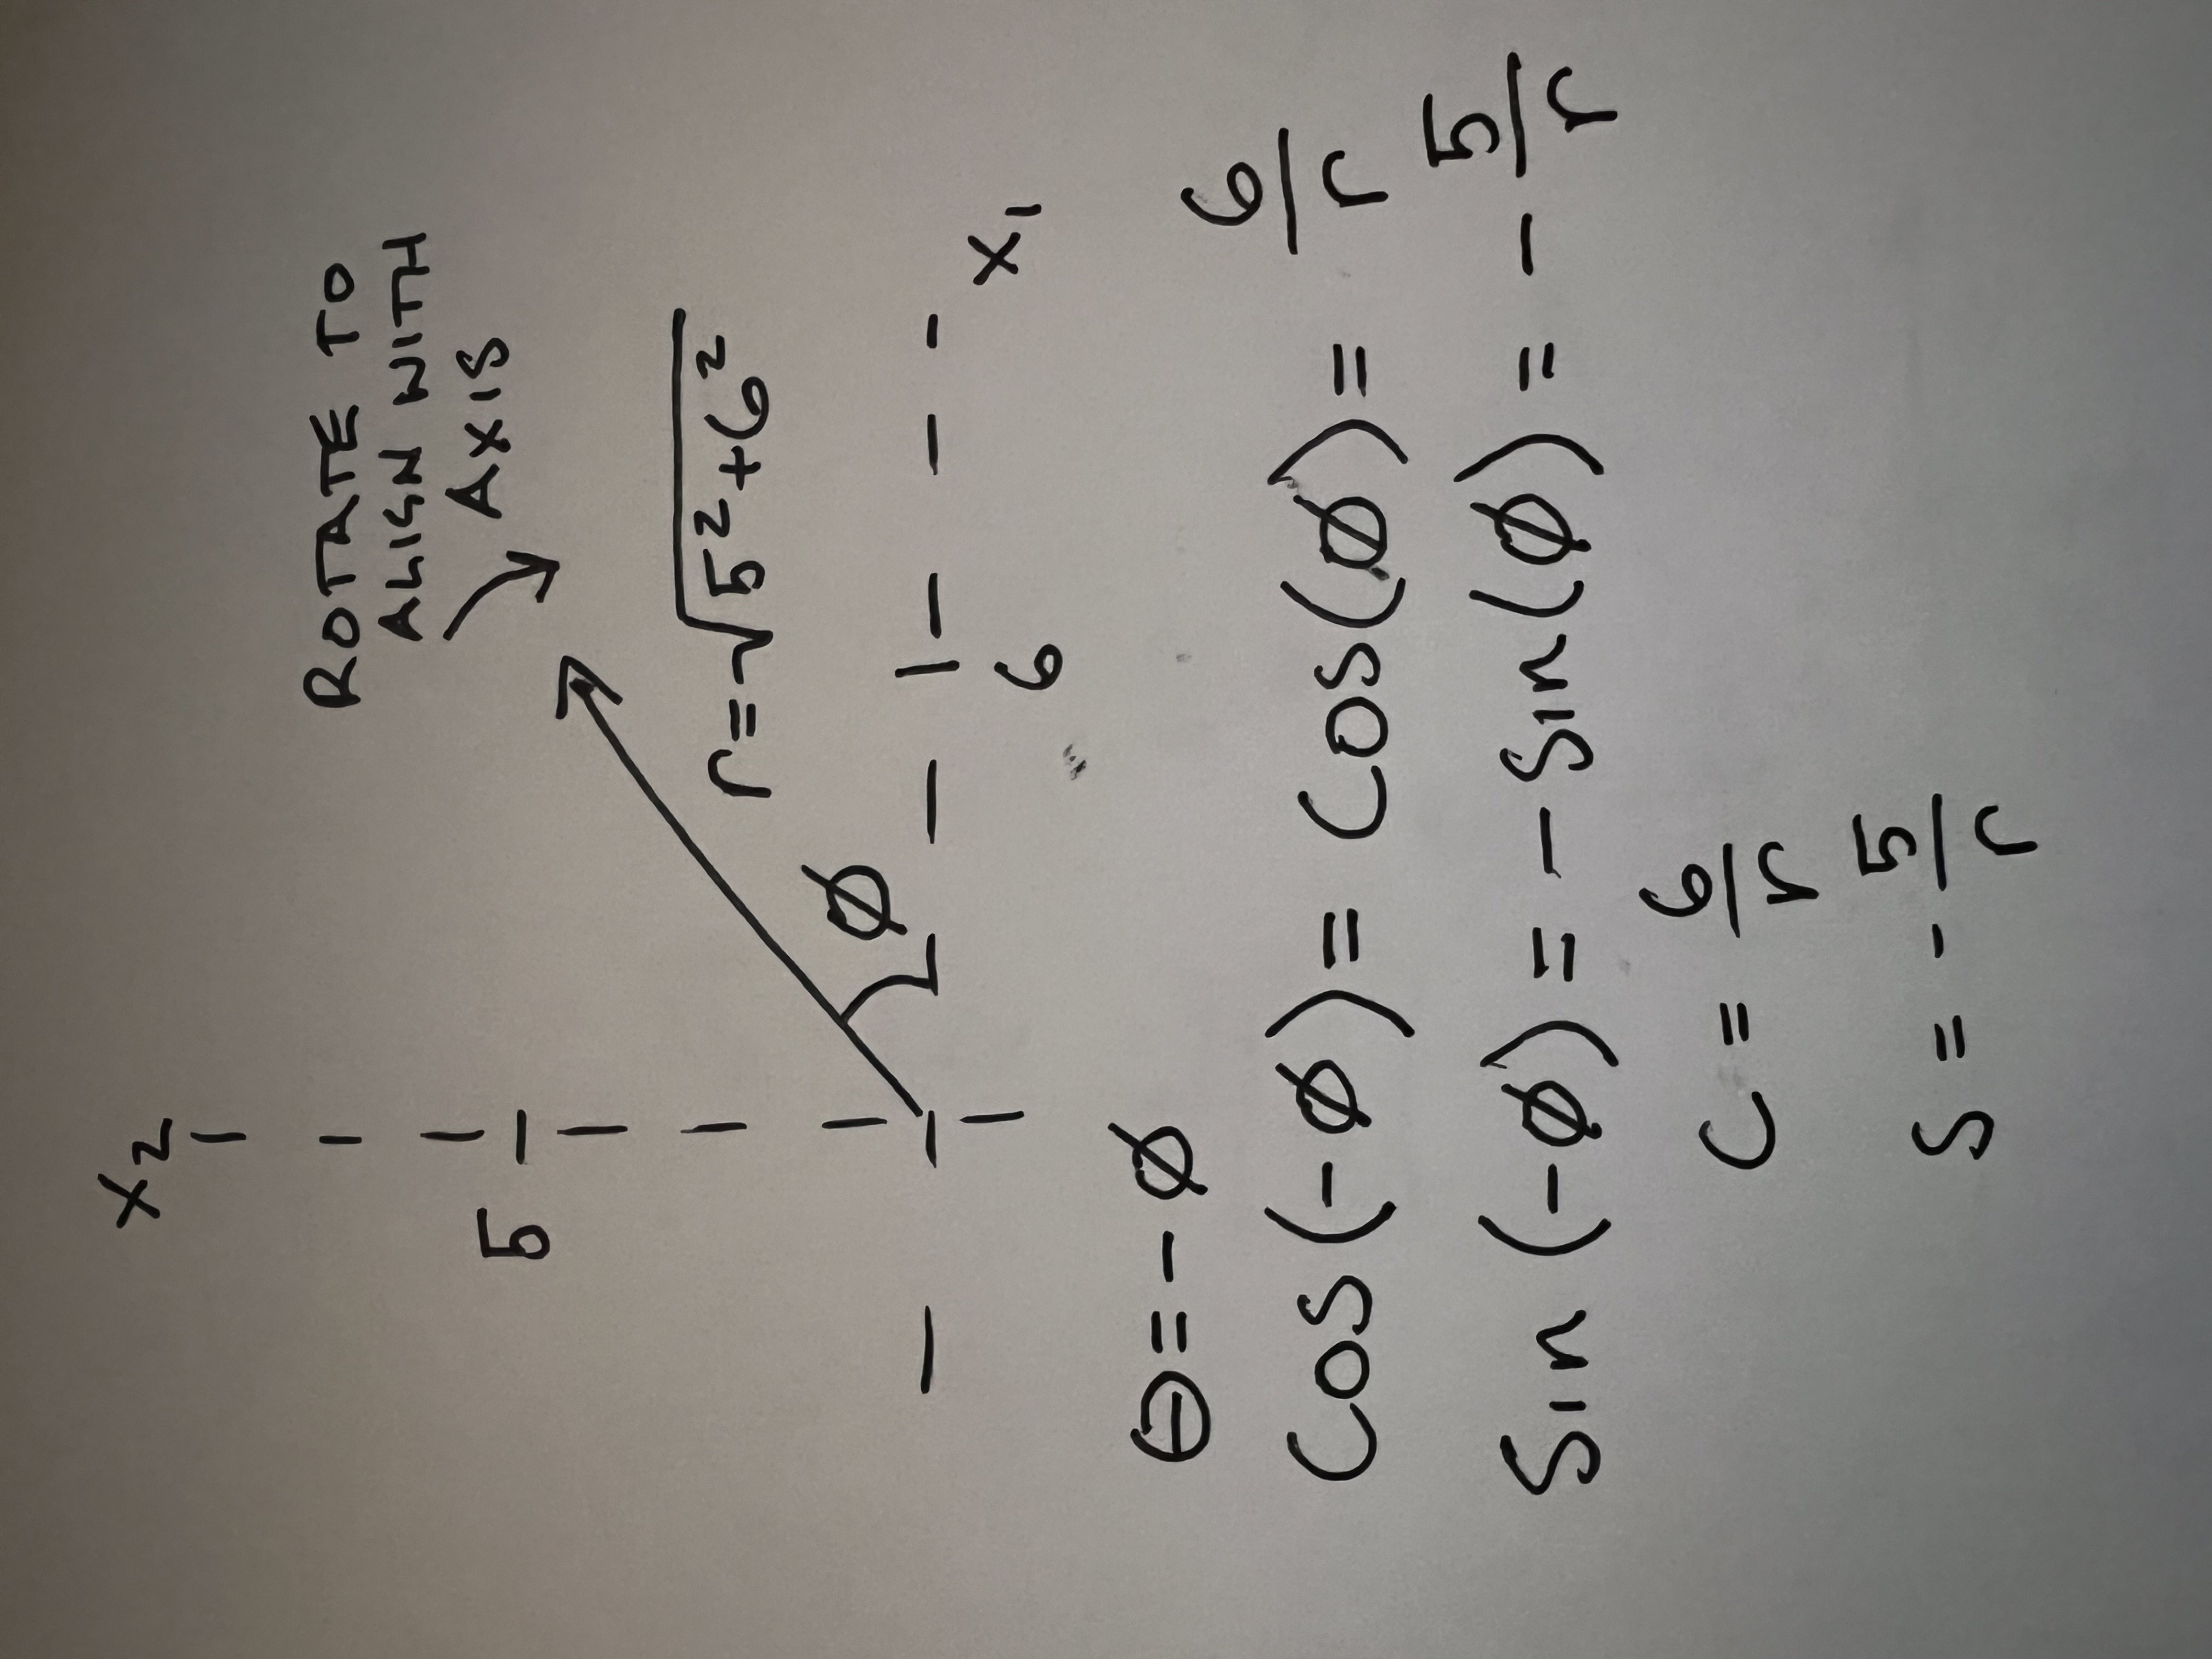 x₂
ROTATE TO
ALIGN WITH
AXIS
5
r=√5²+6²
∅
6
x₁
θ=-∅
Cos(-∅)= Cos(∅)= 6/r
Sin (-∅) = -Sin(∅) = - 5/r
C = 6/r
S = - 5/r